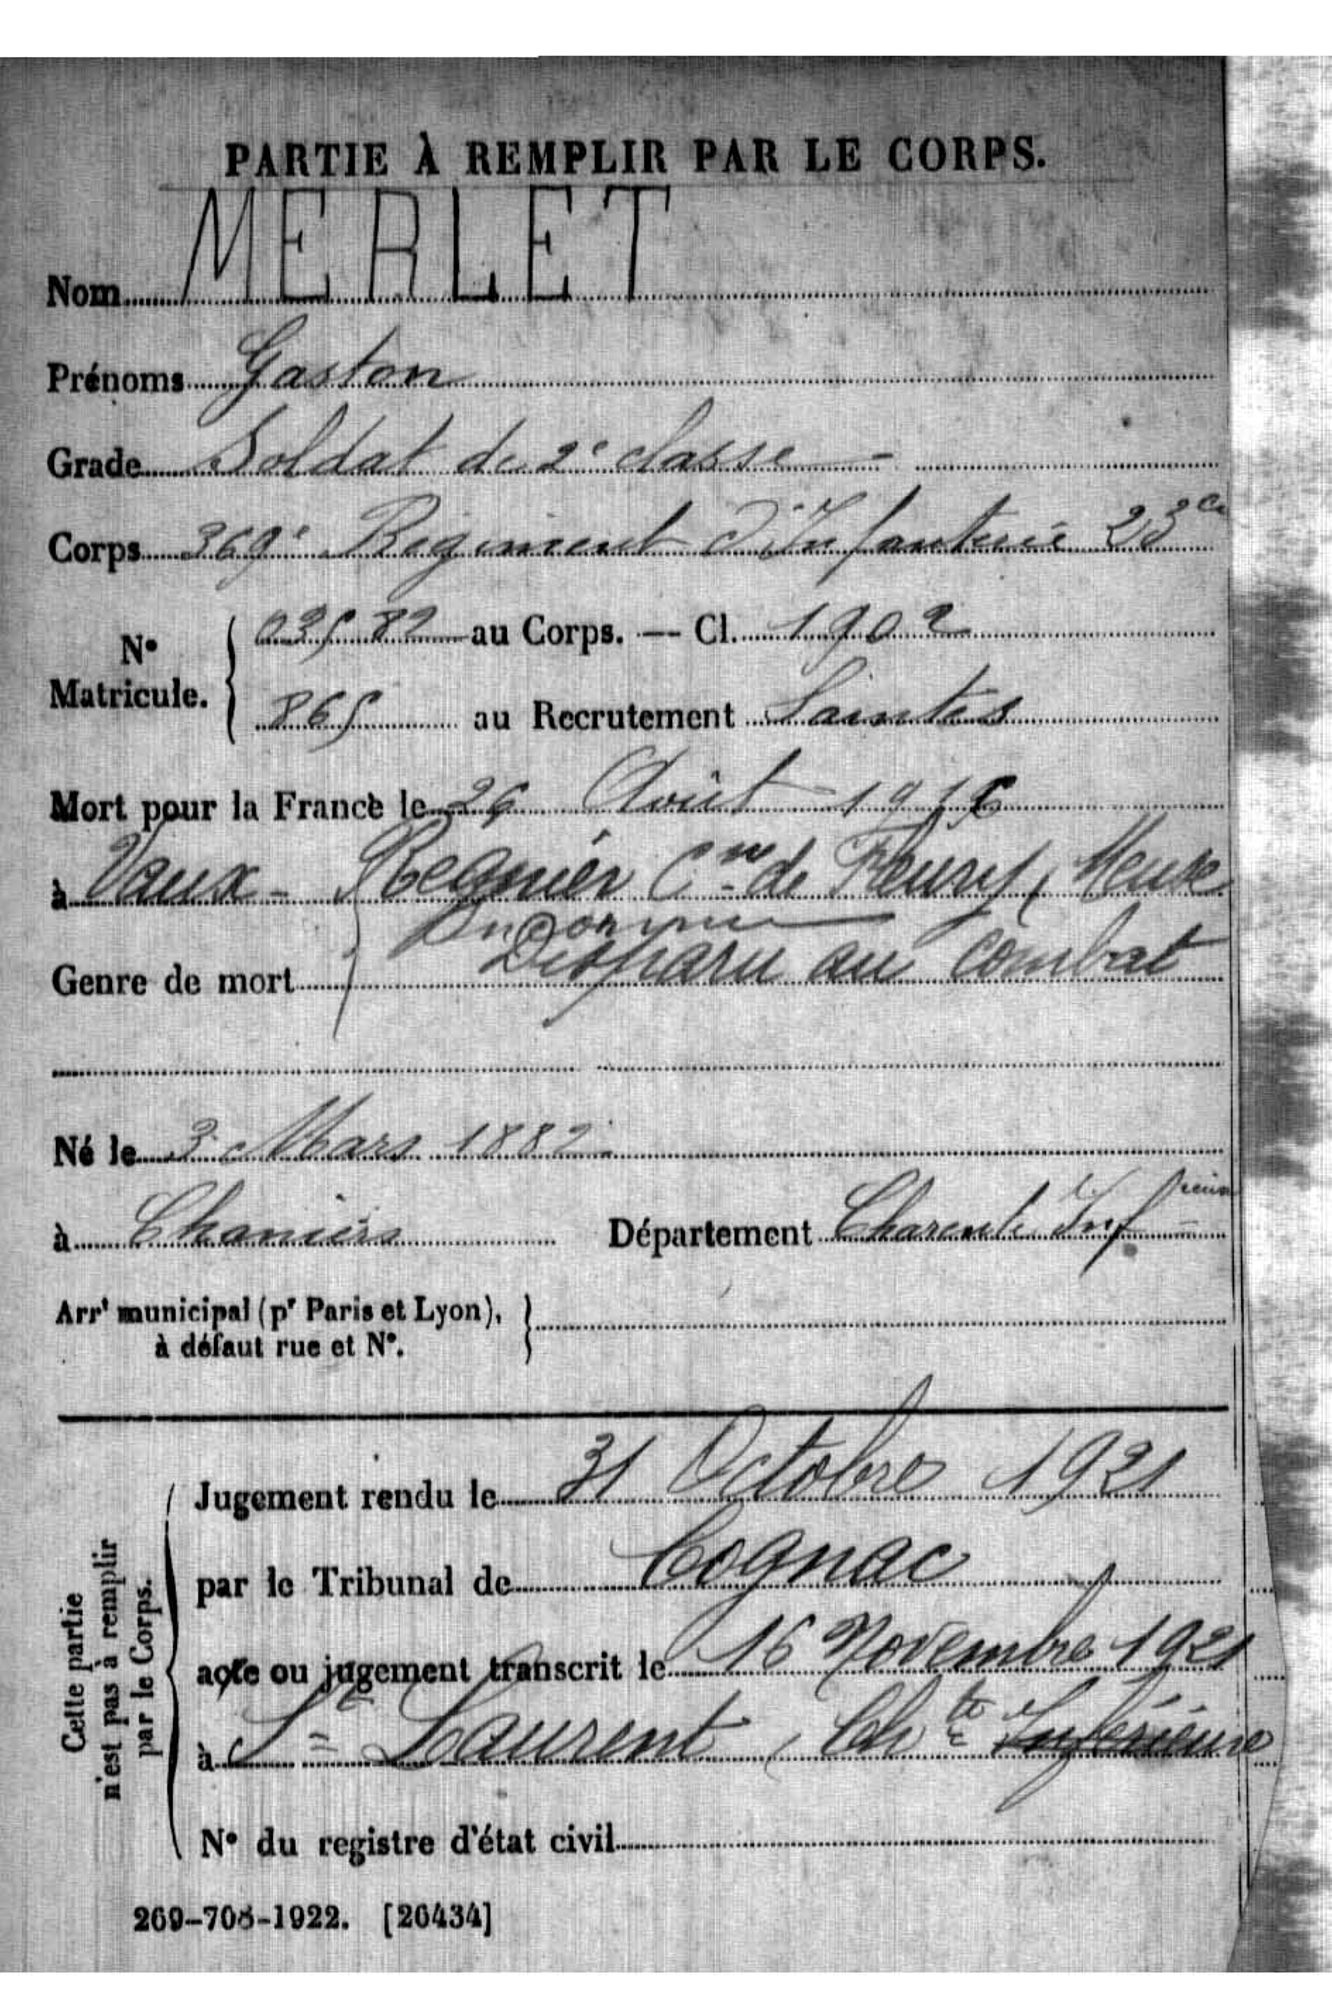 PARTIE À REMPLIR PAR LE CORPS.
Nom MERLET
Prénoms Gaston
Grade Soldat de 2e classe
Corps 369e Régiment d'Infanterie 23e Cie
No Matricule. { 03582 au Corps. — Cl. 1902
865 au Recrutement Saintes
Mort pour la France le 26 Août 1916
à Vaux-Regnier Cne de Fleury, Meuse
Genre de mort Disparu au combat
Né le 3 Mars 1882
à Chaniers Département Charente Infrieure
Arrt municipal (pr Paris et Lyon),
à défaut rue et No. }
Cette partie
n'est pas à remplir
par le Corps.
Jugement rendu le 31 Octobre 1921
par le Tribunal de Cognac
acte ou jugement transcrit le 16 Novembre 1921
à St Laurent, Chte Inférieure
No du registre d'état civil
269-708-1922. [26434]